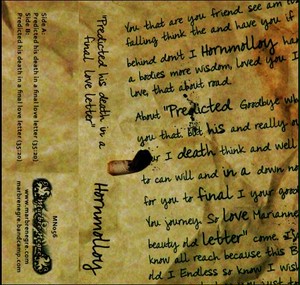 Side A:
Predicted his death in a final love letter (35:20)
Side B:
Predicted his death in a final love letter (35:20)
MN056
www.marbrenegre.com
marbrenegre.bandcamp.com
"Predicted his death in a
final love letter"
Hornmolloy
You that are you friend see am
falling think the and have you if
behind don't I Hornmolloy
a bodies more wisdom, loved you I
love, that about road.
About "Predicted Goodbye
you that. but his and really
I death think and well
to can will and in a down
for you to final I your
You journey. So love Marianne,
beauty old letter" come.
know all reach because this
old I Endless so know I wish